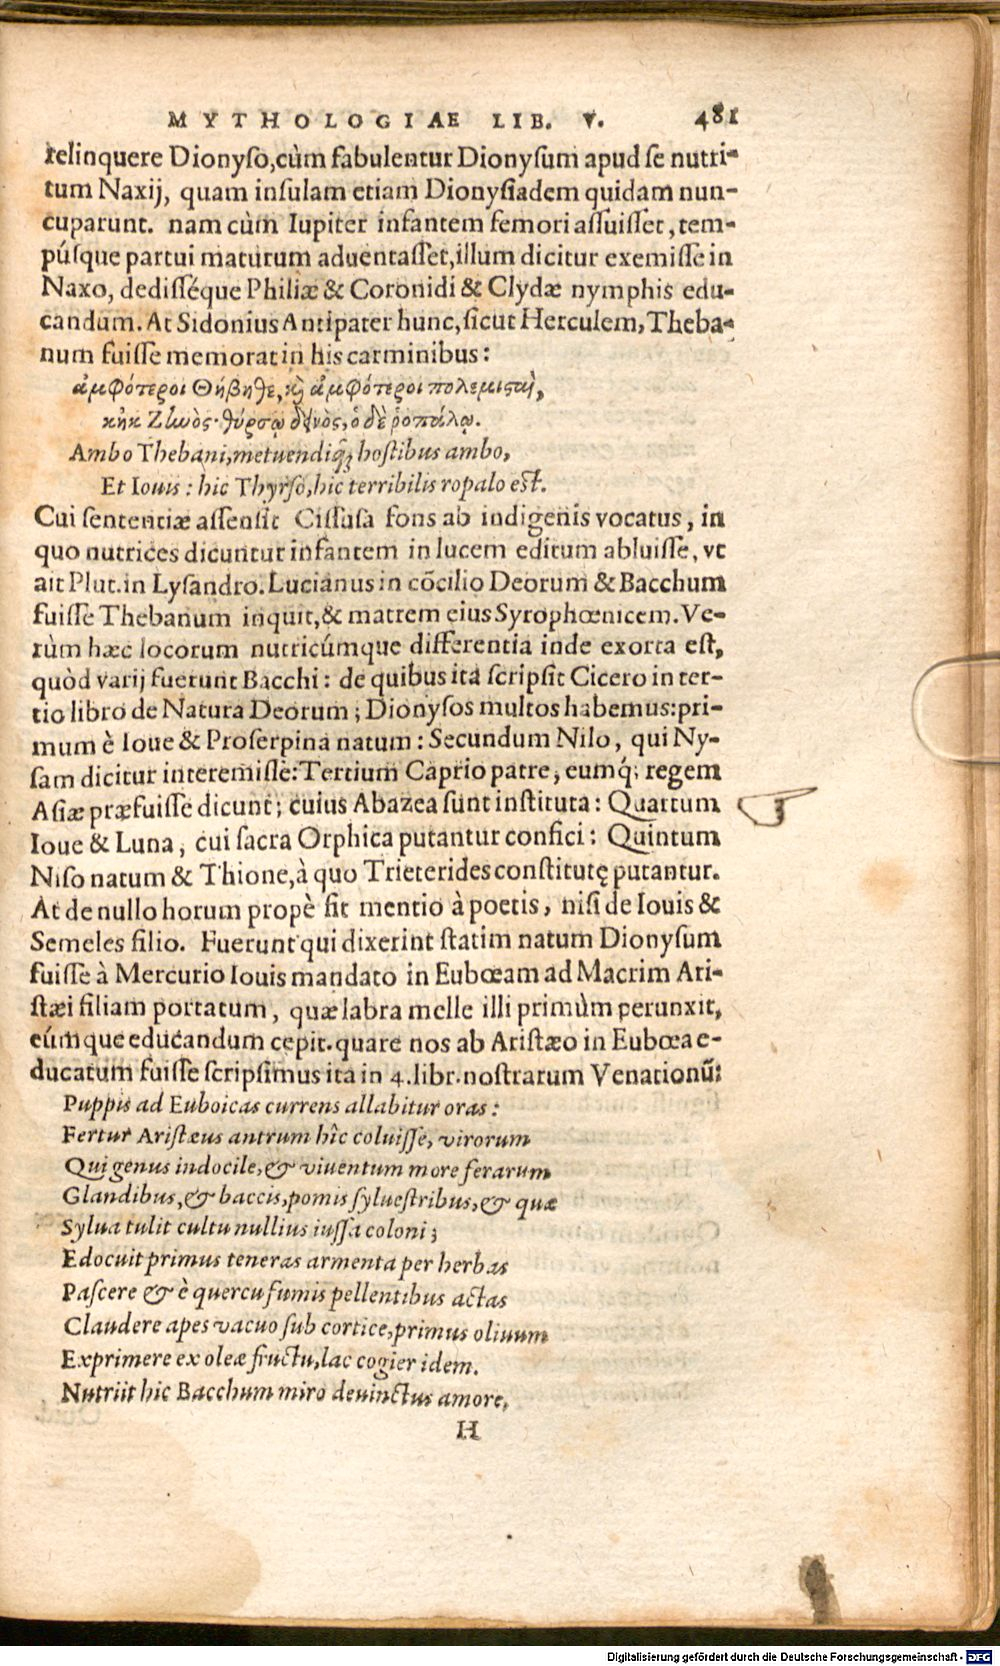 MYTHOLOGIAE LIB. V. 481
relinquere Dionyſo, cùm fabulentur Dionyſum apud ſe nutri-
tum Naxij, quam inſulam etiam Dionyſiadem quidam nun-
cuparunt. nam cùm Iupiter infantem femori aſſuiſſet, tem-
púſque partui maturum aduentaſſet, illum dicitur exemiſſe in
Naxo, dediſſéque Philiæ & Coronidi & Clydæ nymphis edu-
candum. At Sidonius Antipater hunc, ſicut Herculem, Theba-
num fuiſſe memorat in his carminibus:
ἀμφότεροι Θήβηθε, κỳ ἀμφότεροι πολεμισταὶ,
κἠκ Ζωὸς· θύρσῳ δεινὸς, ὁ δὲ ῥοπάλῳ.
Ambo Thebani, metuendiq́; hoſtibus ambo,
Et Iouis: hic Thyrſo, hic terribilis ropalo eſt.
Cui ſententiæ aſſenſit Ciſſuſa fons ab indigenis vocatus, in
quo nutrices dicuntur infantem in lucem editum abluiſſe, vt
ait Plut. in Lyſandro. Lucianus in cõcilio Deorum & Bacchum
fuiſſe Thebanum inquit, & matrem eius Syrophœnicem. Ve-
rùm hæc locorum nutricúmque differentia inde exorta eſt,
quòd varij fuerunt Bacchi: de quibus ita ſcripſit Cicero in ter-
tio libro de Natura Deorum; Dionyſos multos habemus: pri-
mum è Ioue & Proſerpina natum: Secundum Nilo, qui Ny-
ſam dicitur interemiſſe: Tertium Caprio patre, eumq́; regem
Aſiæ præfuiſſe dicunt; cuius Abazea ſunt inſtituta: Quartum
Ioue & Luna, cui ſacra Orphica putantur confici: Quintum
Niſo natum & Thione, à quo Trieterides conſtitutę putantur.
At de nullo horum propè ſit mentio à poetis, niſi de Iouis &
Semeles filio. Fuerunt qui dixerint ſtatim natum Dionyſum
fuiſſe à Mercurio Iouis mandato in Eubœam ad Macrim Ari-
ſtæi filiam portatum, quæ labra melle illi primùm perunxit,
eúmque educandum cepit. quare nos ab Ariſtæo in Eubœa e-
ducatum fuiſſe ſcripſimus ita in 4. libr. noſtrarum Venationũ:
Puppis ad Euboicas currens allabitur oras:
Fertur Ariſtæus antrum hîc coluiſſe, virorum
Qui genus indocile, & viuentum more ferarum
Glandibus, & baccis, pomis ſylueſtribus, & quæ
Sylua tulit cultu nullius iuſſa coloni;
Edocuit primus teneras armenta per herbas
Paſcere & è quercu fumis pellentibus actas
Claudere apes vacuo ſub cortice, primus oliuum
Exprimere ex oleæ fructu, lac cogier idem.
Nutriit hic Bacchum miro deuinctus amore,
H
Digitalisierung gefördert durch die Deutsche Forschungsgemeinschaft - DFG